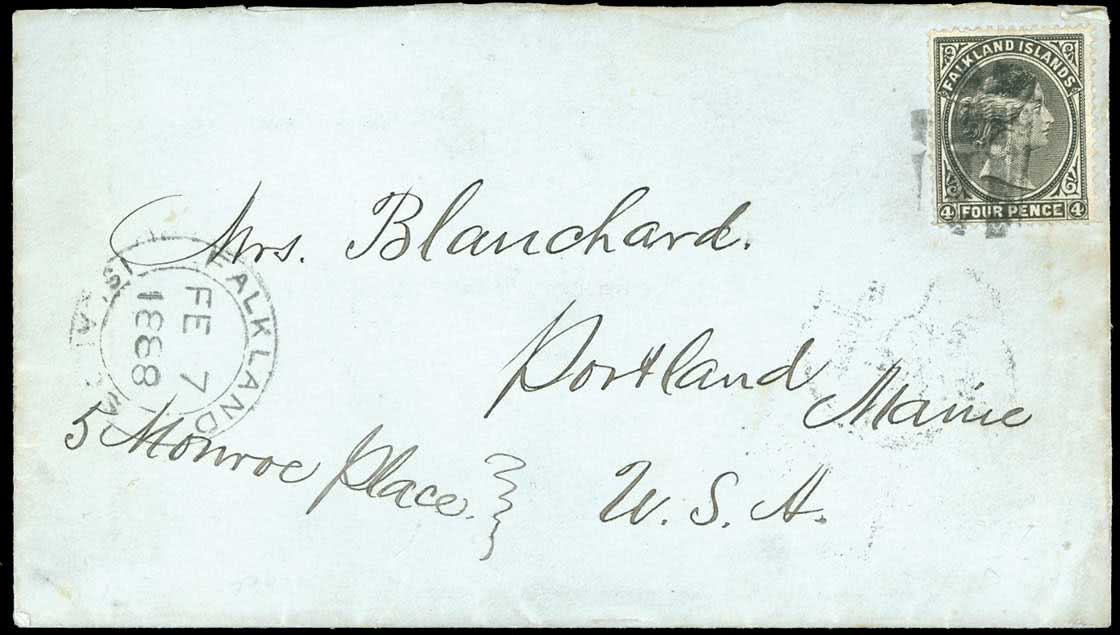 FALKLAND ISLANDS
4 FOUR PENCE 4
Mrs. Blanchard.
FALKLAND
FE 7
1888
Portland
Maine
5 Monroe Place.
U. S. A.